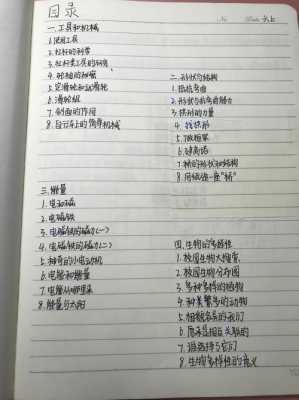 目录
No
Date 六上
一.工具和机械
1.使用工具
2.杠杆的科学
3.杠杆类工具的研究
4.轮轴的秘密
5.定滑轮和动滑轮
6.滑轮组
7.斜面的作用
8.自行车上的简单机械
二.形状与结构
1.抵抗弯曲
2.形状与抗弯曲能力
3.拱形的力量
4.找拱形
5.做框架
6.建高塔
7.桥的形状和结构
8.用纸造一座"桥"
三.能量
1.电和磁
2.电磁铁
3.电磁铁的磁力(一)
4.电磁铁的磁力(二)
5.神奇的小电动机
6.电能和能量
7.电能从哪里来
8.能量与太阳
四.生物的多样性
1.校园生物大搜索
2.校园生物分布图
3.多种多样的植物
4.种类繁多的动物
5.相貌各异的我们
6.原来是相互关联的
7.谁选择了它们
8.生物多样性的意义